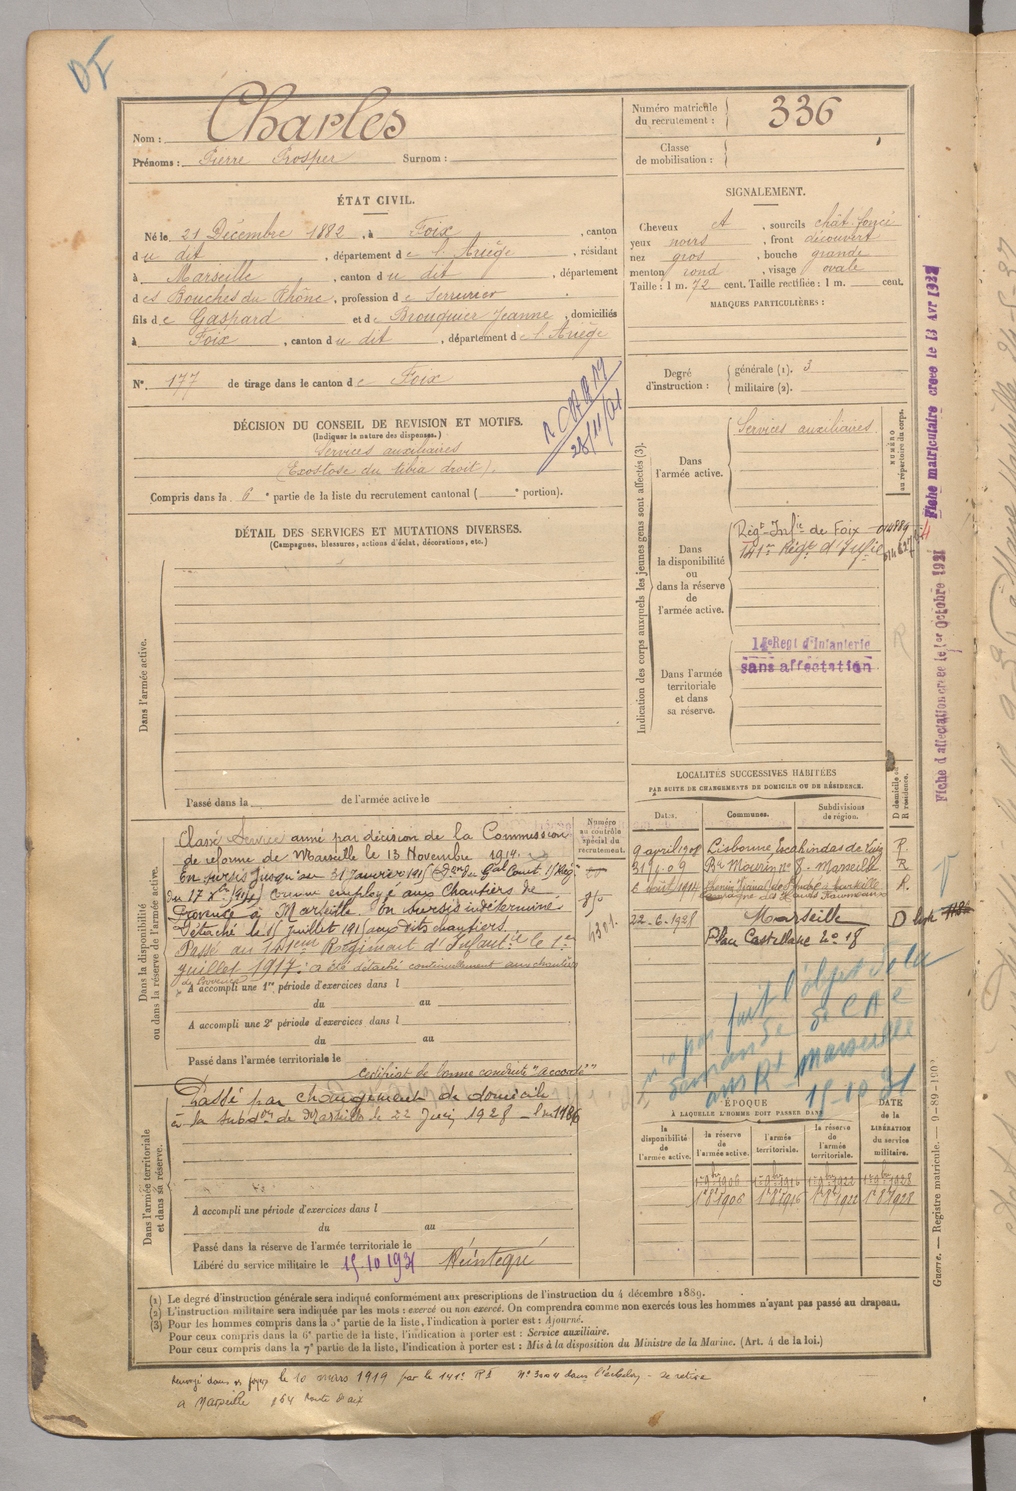 Nom : Charles
Prénoms : Pierre Prosper Surnom :
Numéro matricule du recrutement : 336
Classe de mobilisation :
ÉTAT CIVIL.
Né le 21 Décembre 1882, à Foix, canton
du dit, département de l'Ariège, résidant
à Marseille, canton du dit, département
des Bouches du Rhône, profession de Serrurier
fils de Gaspard et de Brouquier Jeanne, domiciliés
à Foix, canton du dit, département de l'Ariège
N°. 177 de tirage dans le canton de Foix
DÉCISION DU CONSEIL DE REVISION ET MOTIFS.
(Indiquer la nature des dispenses.)
Services auxiliaires
(Exostose du tibia droit).
Compris dans la 6e partie de la liste du recrutement cantonal ( e portion).
28/11/01
SIGNALEMENT.
Cheveux ct, sourcils chât foncé
yeux noirs, front découvert
nez gros, bouche grande
menton rond, visage ovale
Taille : 1 m. 72 cent. Taille rectifiée : 1 m. cent.
MARQUES PARTICULIÈRES :
Degré d'instruction : générale (1). 3
militaire (2).
DÉTAIL DES SERVICES ET MUTATIONS DIVERSES.
(Campagnes, blessures, actions d'éclat, décorations, etc.)
Dans l'armée active.
Passé dans la de l'armée active le
Indication des corps auxquels les jeunes gens sont affectés (3).
NUMÉRO au répertoire du corps.
Dans l'armée active.
Services auxiliaires.
Dans la disponibilité ou dans la réserve de l'armée active.
Régt Infie de Foix
141me Régt d'Infie
Dans l'armée territoriale et dans sa réserve.
sans affectation
Fiche matriculaire créée le 13 Avr 193
Fiche d'affectation créée le 1er Octobre 1931
LOCALITÉS SUCCESSIVES HABITÉES
PAR SUITE DE CHANGEMENTS DE DOMICILE OU DE RÉSIDENCE.
Dates. Communes. Subdivisions de région. D domicile ou R résidence.
9 avril 1908 Lisbonne R.
31 1 09 Bd Mourin no 8. Marseille R
22-6-1928 Marseille D
Place Castellane No 18
Dans la disponibilité ou dans la réserve de l'armée active.
Numéro au contrôle spécial du recrutement.
Classé Service armé par décision de la Commission
de réforme de Marseille le 13 Novembre 1914.
En sursis jusqu'au 31 Janvier 191
comme employé aux Chantiers de
Provence à Marseille. En sursis indéterminé
Détaché le 1 Juillet 191 aux dits chantiers
Passé au 141eme Régiment d'Infantie le 1er
juillet 1917. a été détaché continuellement aux chantiers
de Provence
A accompli une 1re période d'exercices dans l
du au
A accompli une 2e période d'exercices dans l
du au
Passé dans l'armée territoriale le
Certificat de bonne conduite "accordé"
Dans l'armée territoriale et dans sa réserve.
Passé par changement de domicile
à la subdon de Marseille le 22 Juin 1928
A accompli une période d'exercices dans l
du au
Passé dans la réserve de l'armée territoriale le
Libéré du service militaire le 15.10.1931 Réintégré
n'a pas fait l'objet de la
demande de CA
Marseille
15-10-31
ÉPOQUE
À LAQUELLE L'HOMME DOIT PASSER DANS
DATE de la LIBÉRATION du service militaire.
la disponibilité de l'armée active. la réserve de l'armée active. l'armée territoriale. la réserve de l'armée territoriale.
1r 8e 1906 1r 8e 1916 1r 8e 1922 1r 8e 1928
Guerre. — Registre matricule.
(1) Le degré d'instruction générale sera indiqué conformément aux prescriptions de l'instruction du 4 décembre 1889.
(2) L'instruction militaire sera indiquée par les mots : exercé ou non exercé. On comprendra comme non exercés tous les hommes n'ayant pas passé au drapeau.
(3) Pour les hommes compris dans la 5e partie de la liste, l'indication à porter est : Ajourné.
Pour ceux compris dans la 6e partie de la liste, l'indication à porter est : Service auxiliaire.
Pour ceux compris dans la 7e partie de la liste, l'indication à porter est : Mis à la disposition du Ministre de la Marine. (Art. 4 de la loi.)
Renvoyé dans ses foyers le 10 mars 1919 par le 141e RI dans l'échelon se retire
à Marseille 164 Route d'aix